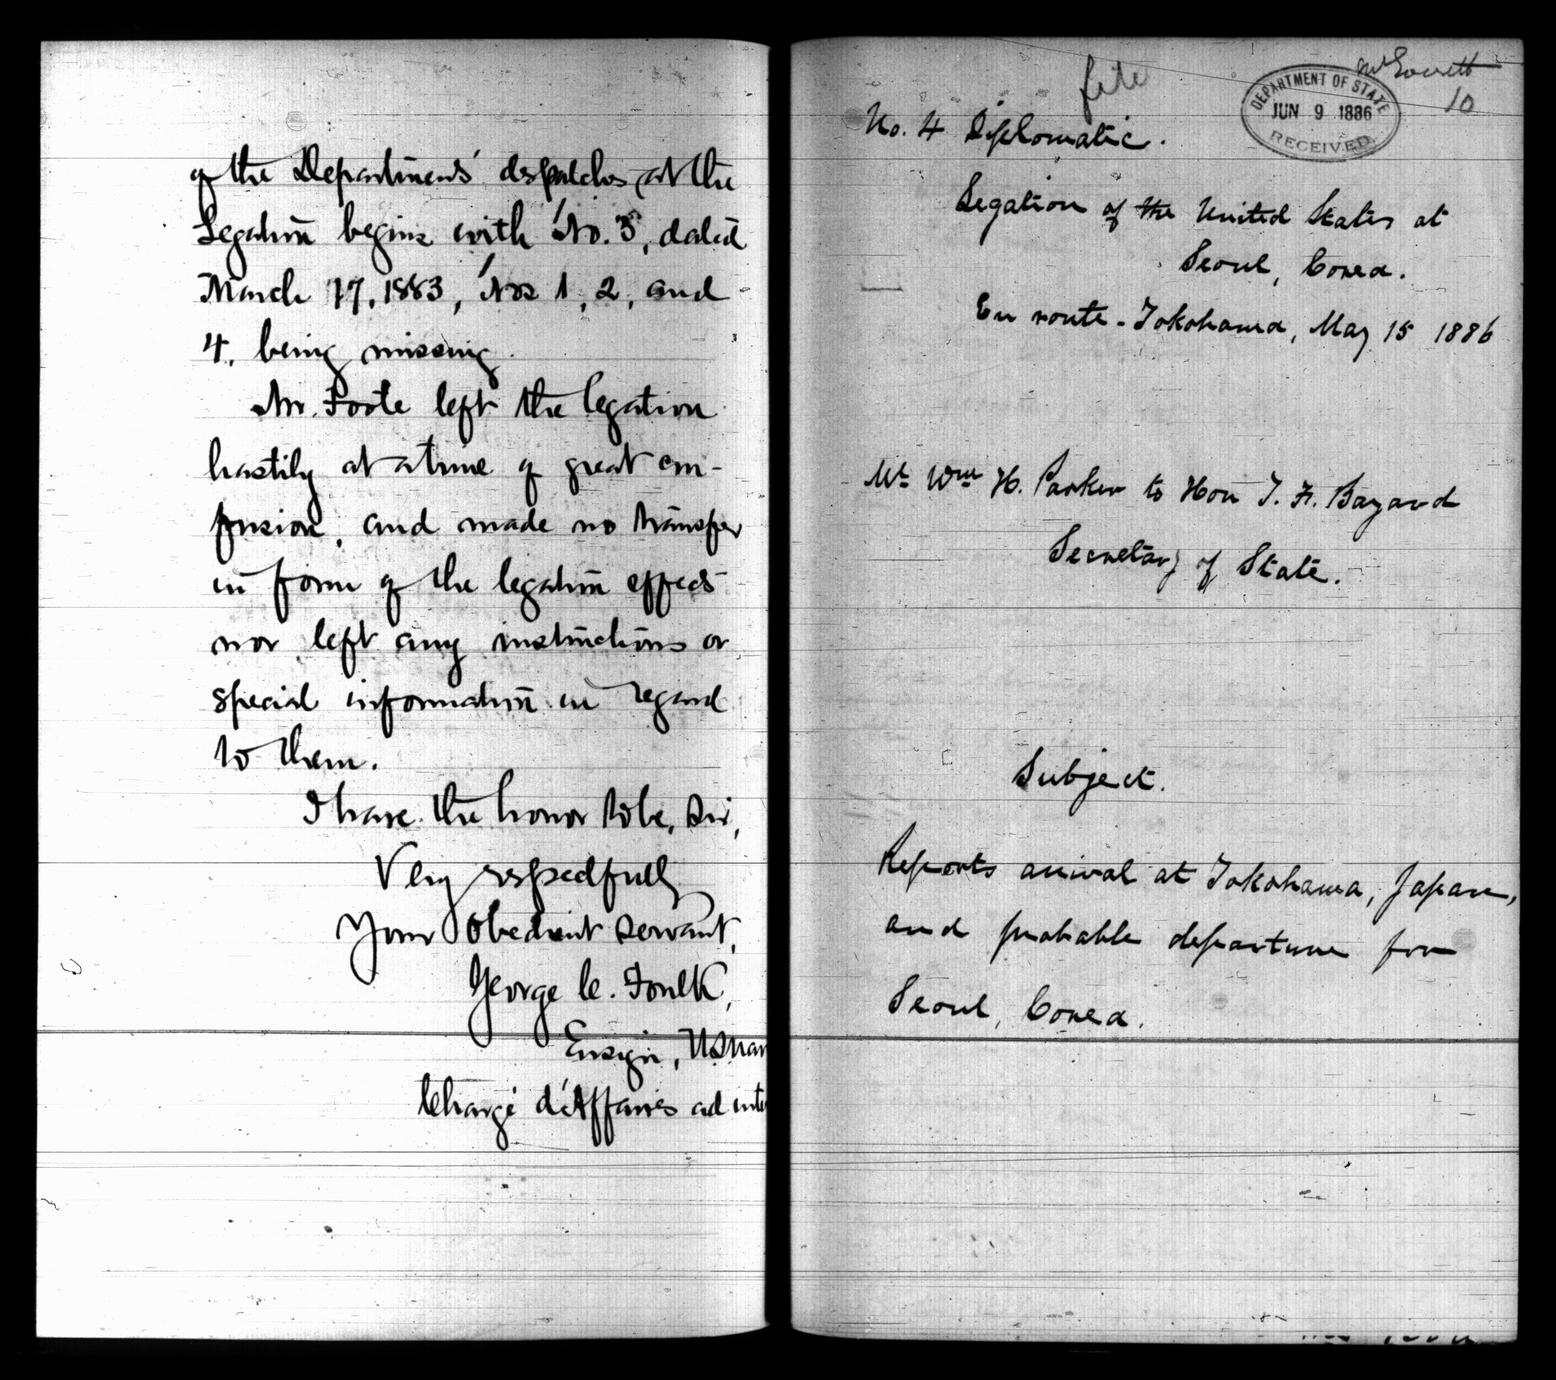 of the Departments' despatches at the
Legation begins with 'No. 3', dated
March 17, 1883, 'Nos 1, 2, and
4, being missing.
Mr. Foote left the legation
hastily at a time of great con-
fusion, and made no transfer
in form of the legation effects
nor left any instructions or
special information in regard
to them.
I have the honor to be, Sir,
Very respectfully
Your Obedient servant,
George C. Foulk,
Ensign, US Nav
Chargé d'Affaires ad inte
file
Mr Everett
10
DEPARTMENT OF STATE
JUN 9 1886
RECEIVED.
No. 4 Diplomatic.
Legation of the United States at
Seoul, Corea.
En route - Yokohama, May 15 1886
Mr. Wm H. Parker to Hon T. F. Bayard
Secretary of State.
Subject.
Reports arrival at Yokohama, Japan,
and probable departure for
Seoul, Corea.